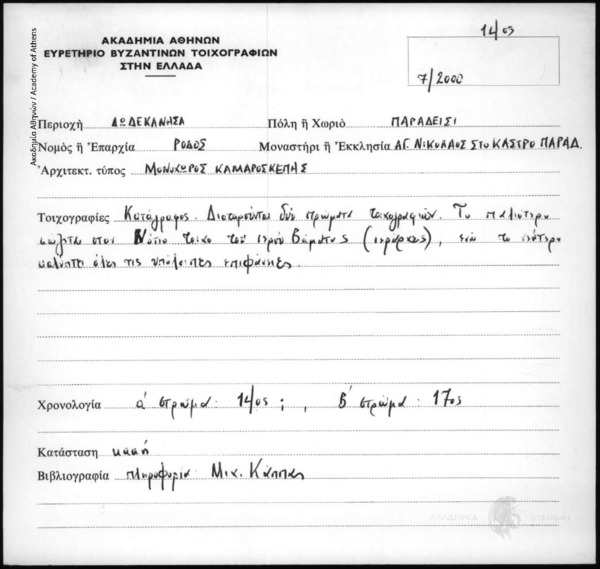 14ος
ΑΚΑΔΗΜΙΑ ΑΘΗΝΩΝ
ΕΥΡΕΤΗΡΙΟ ΒΥΖΑΝΤΙΝΩΝ ΤΟΙΧΟΓΡΑΦΙΩΝ
ΣΤΗΝ ΕΛΛΑΔΑ
7/2000
Ακαδημία Αθηνών / Academy of Athens
Περιοχὴ ΔΩΔΕΚΑΝΗΣΑ Πόλη ἢ Χωριὸ ΠΑΡΑΔΕΙΣΙ
Νομὸς ἢ Ἐπαρχία ΡΟΔΟΣ Μοναστήρι ἢ Ἐκκλησία ΑΓ. ΝΙΚΟΛΑΟΣ ΣΤΟ ΚΑΣΤΡΟ ΠΑΡΑΔ.
Ἀρχιτεκτ. τύπος ΜΟΝΟΧΩΡΟΣ ΚΑΜΑΡΟΣΚΕΠΗΣ
Τοιχογραφίες Κατάγραφος. Διατηρούνται δύο στρώματα τοιχογραφιών. Το παλιότερο
σώζεται στον Νότιο τοίχο του ιερού Βήματος (ιεράρχες), ενώ το νεότερο
καλύπτει όλες τις υπόλοιπες επιφάνειες.
Χρονολογία α' στρώμα: 14ος ; , Β' στρώμα: 17ος
Κατάσταση κακή
Βιβλιογραφία πληροφορία: Μιχ. Κάππας